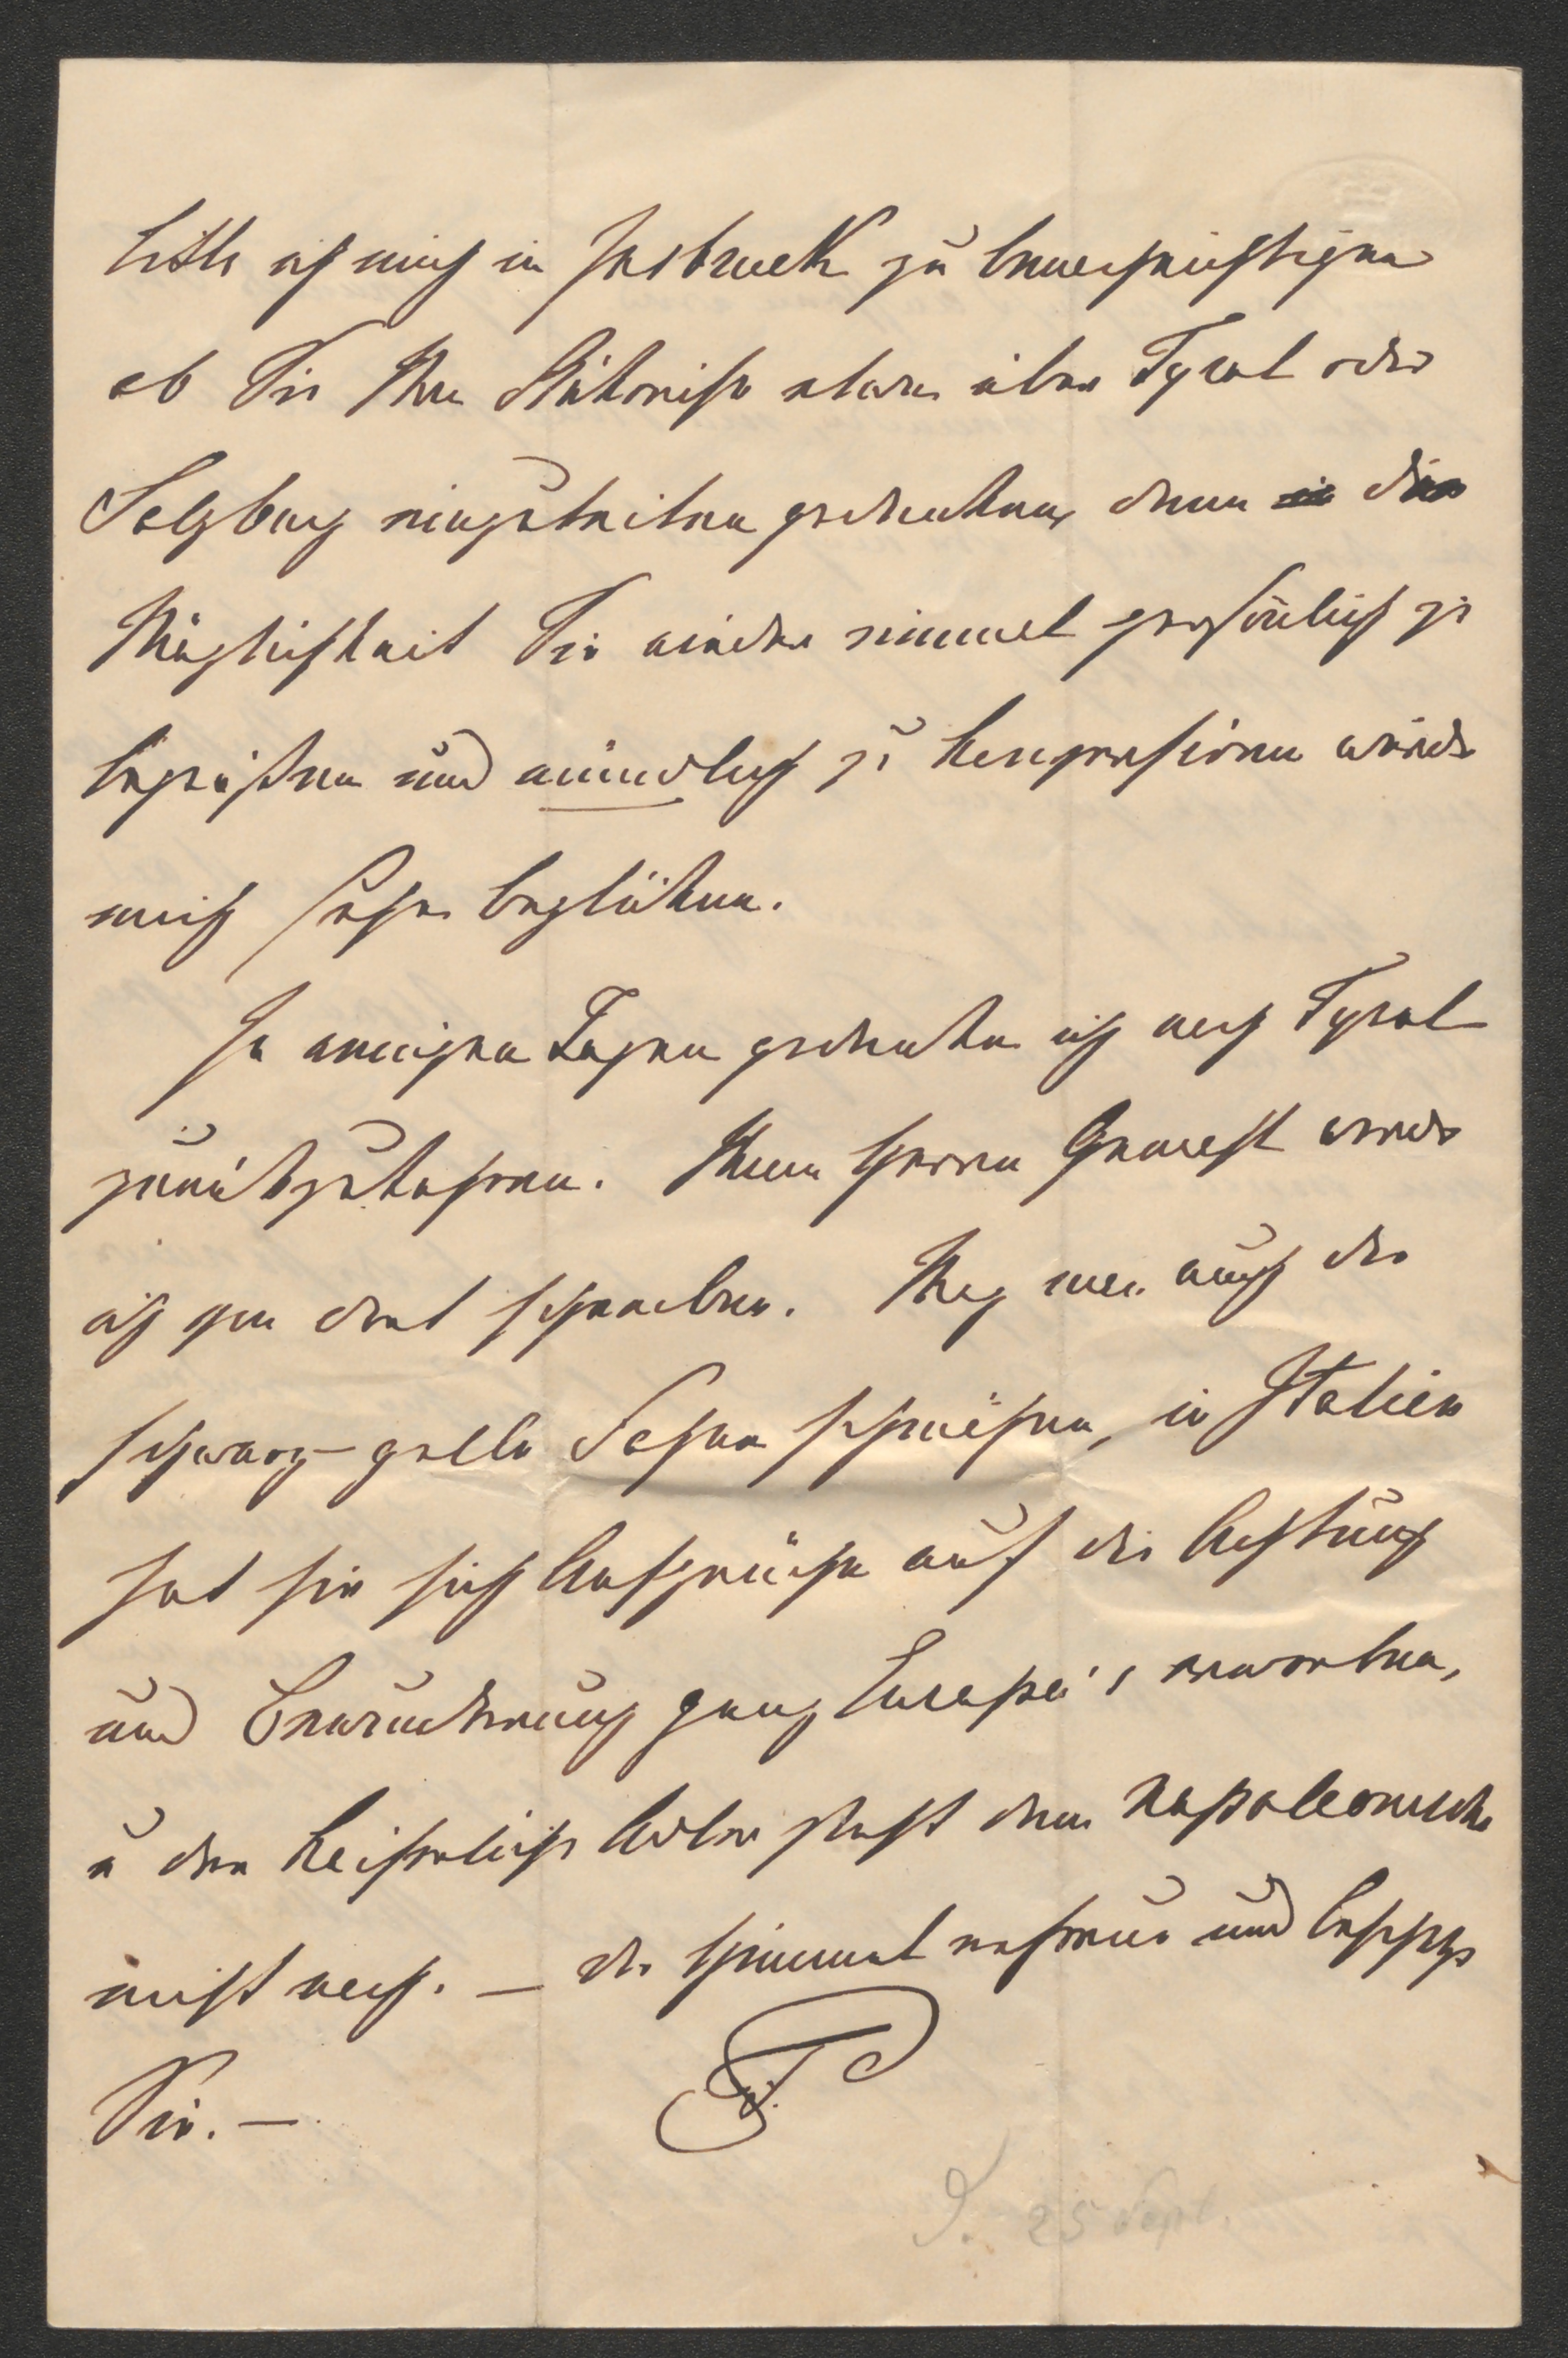 bitte ich mich in Insbruck zu benachrichtigen
ob Sie Ihre Rükreise etwa über Tyrol oder
Salzburg einzuleiten gedenken, denn die
Möglichkeit Sie wieder einmal persönlich zu
begrüßen und mündlich zu kongresiren würde
mich sehr beglüken.
In wenigen Tagen gedenke ich nach Tyrol
zurükzukehren. Ihrem Herrn Gemahl werde
ich von dort schreiben. Mag man auch die
schwarz-gelbe Fahne schmähen, in Italien
hat sie sich Ansprüche auf die Achtung
und Bewunderung ganz Europa's erworben,
u der kaiserliche Adler steht dem napoleonische
nicht nach. — Der Himmel erfreue und beschütze
Sie. —
25 Sept.